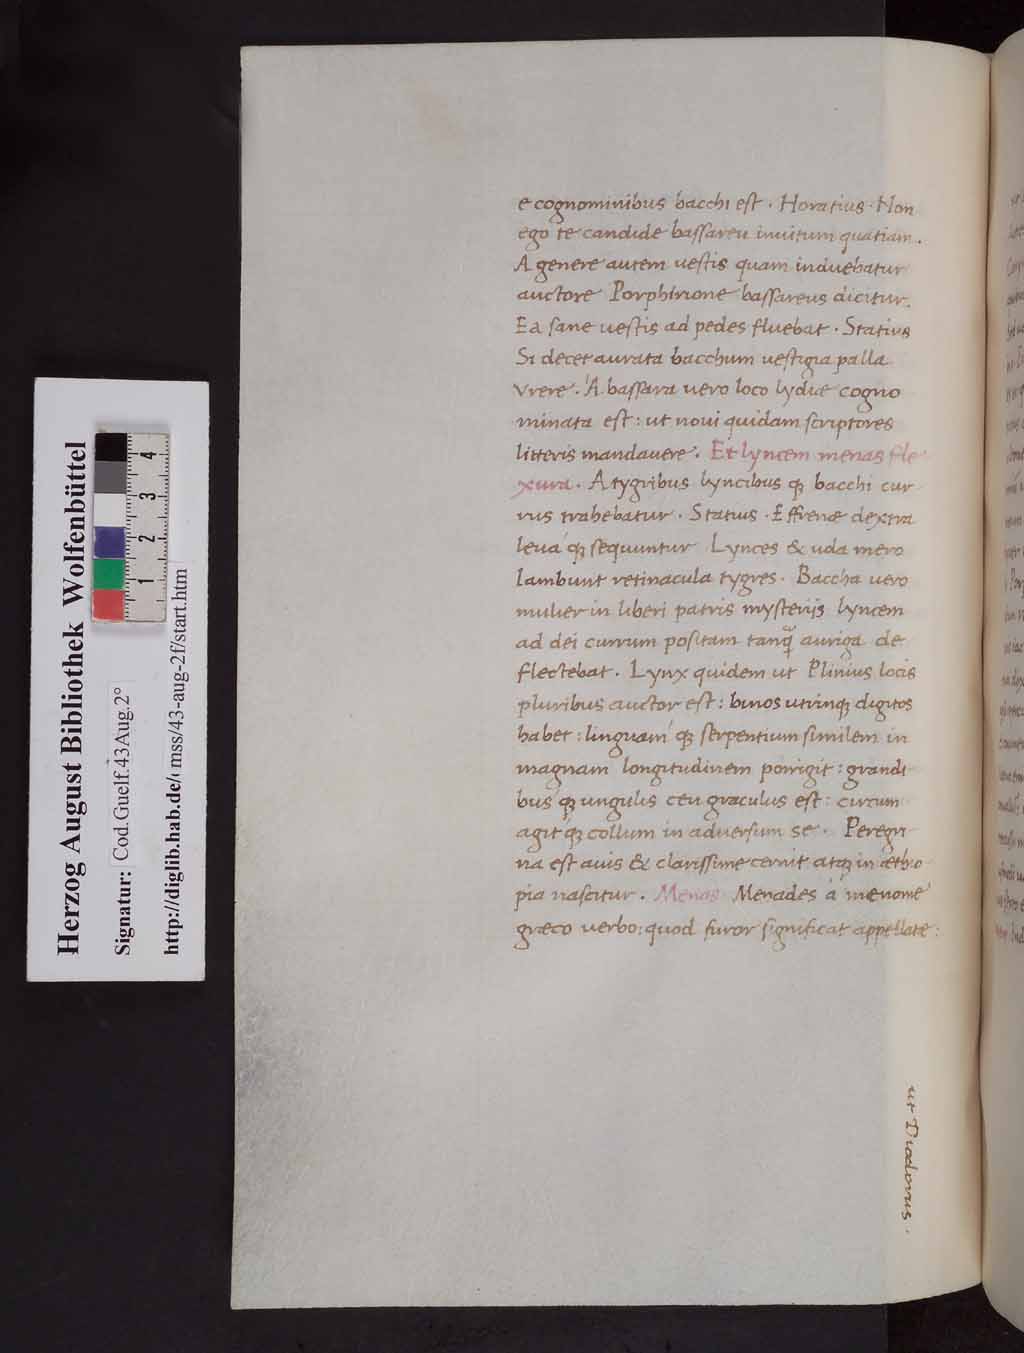 e cognominibus bacchi est . Horatius . Non
ego te candide bassareu inuitum quatiam .
A genere autem uestis quam induebatur
auctore Porphirione bassareus dicitur .
Ea sane uestis ad pedes fluebat . Statius
Si decet aurata bacchum uestigia palla
Vrere . A bassara uero loco lydiæ cogno
minata est : ut noui quidam scriptores
litteris mandauere . Et lyncem menas fle
xura . A tygribus lyncibus q; bacchi cur
rus trahebatur . Statius . Effrenæ dextra
leuá q; sequuntur Lynces & uda mero
lambunt retinacula tygres . Baccha uero
mulier in liberi patris mysteriis lyncem
ad dei currum positam tanq̃ auriga de
flectebat . Lynx quidem ut Plinius locis
pluribus auctor est : binos utrinq; digitos
habet : linguam q; serpentium similem in
magnam longitudinem porrigit : grandi
bus q; ungulis ceu graculus est : circum
agit q; collum in aduersum se . Peregri
na est auis & clarissime cernit atq; in æthio
pia nascitur . Menas Menades á mænome
græco uerbo : quod furor significat appellatæ :
ut Diodorus .
Herzog August Bibliothek Wolfenbüttel
Signatur: Cod. Guelf. 43 Aug. 2°
http://diglib.hab.de/ mss/43-aug-2f/start.htm
1 2 3 4